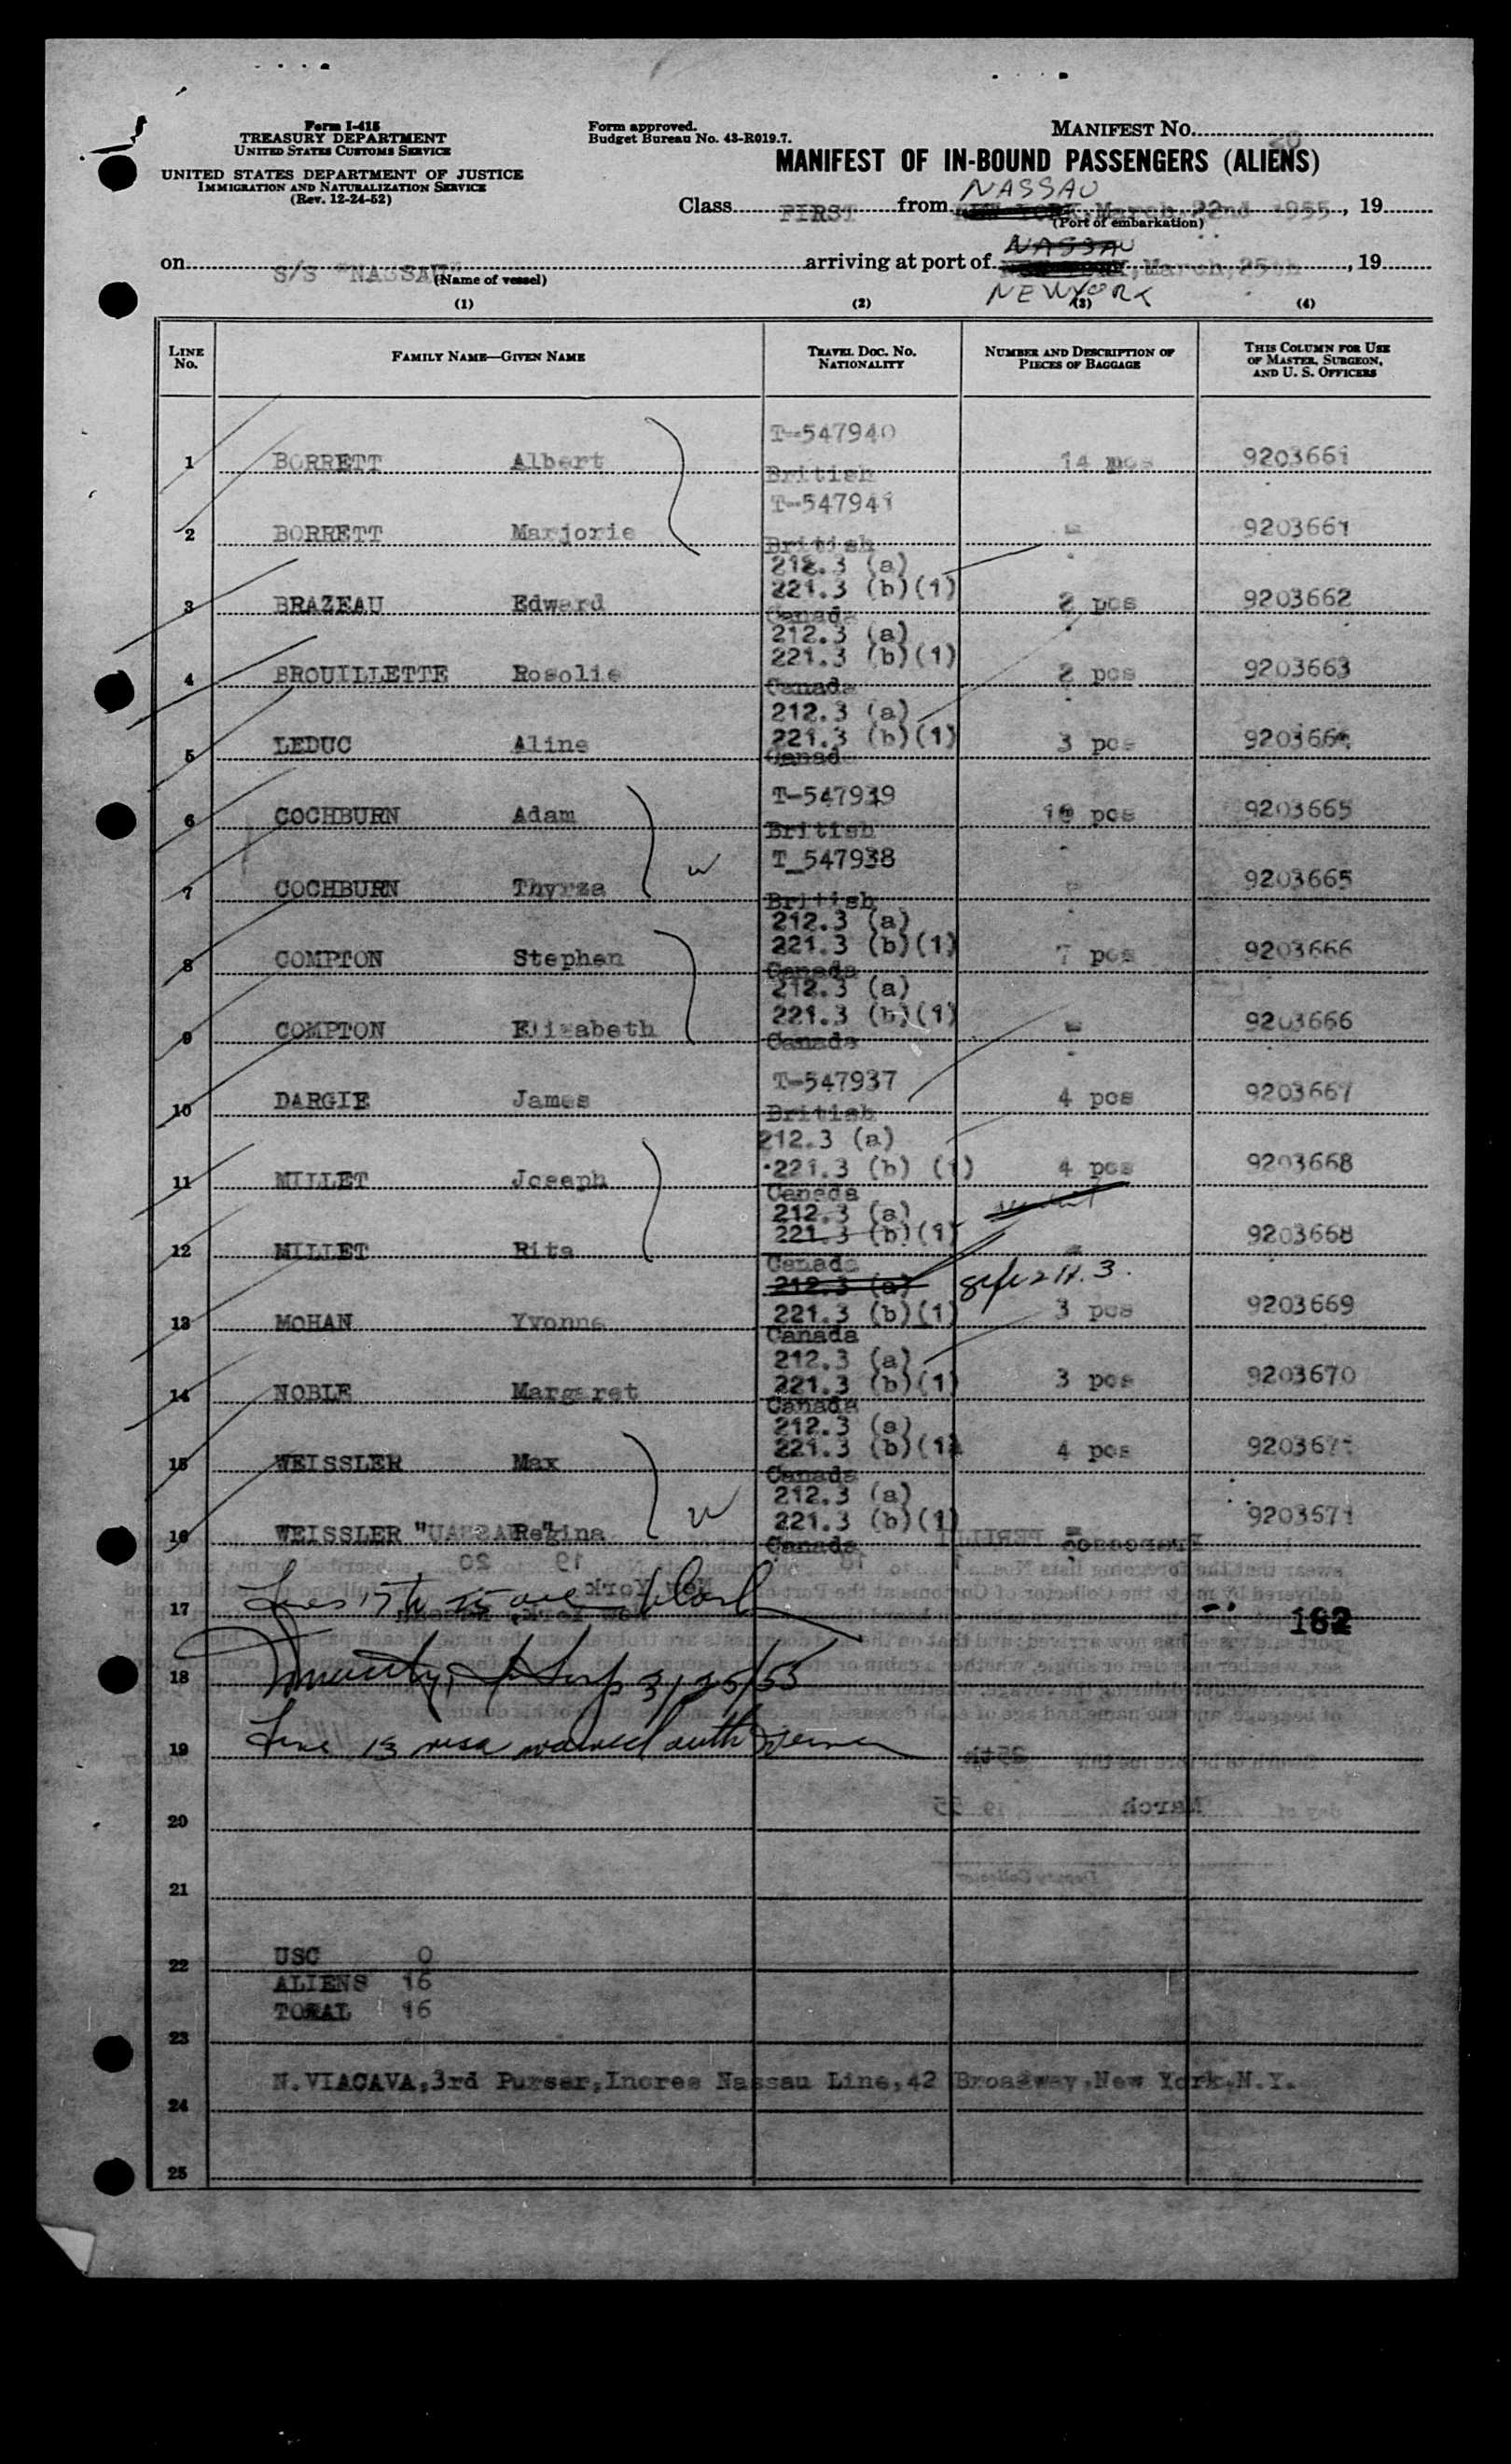 Form I-415
TREASURY DEPARTMENT
UNITED STATES CUSTOMS SERVICE
UNITED STATES DEPARTMENT OF JUSTICE
IMMIGRATION AND NATURALIZATION SERVICE
(Rev. 12-24-52)
Form approved.
Budget Bureau No. 43-R019.7.
MANIFEST NO. 20
MANIFEST OF IN-BOUND PASSENGERS (ALIENS)
NASSAU
Class FIRST from NEW YORK, March, 22nd 1955, 19
(Port of embarkation)
NASSAU
on S/S "NASSAU" arriving at port of March, 25th, 19
(Name of vessel)
NEW YORK
(1) (2) (3) (4)
LINE NO. FAMILY NAME—GIVEN NAME TRAVEL DOC. NO. NATIONALITY NUMBER AND DESCRIPTION OF PIECES OF BAGGAGE THIS COLUMN FOR USE OF MASTER, SURGEON, AND U. S. OFFICERS
T-547940
1 BORRETT Albert British 14 pcs 9203661
T-547941
2 BORRETT Marjorie British = 9203661
212.3 (a)
221.3 (b)(1)
3 BRAZEAU Edward Canada 2 pcs 9203662
212.3 (a)
221.3 (b)(1)
4 BROUILLETTE Rosolie Canada 2 pcs 9203663
212.3 (a)
221.3 (b)(1)
5 LEDUC Aline Canada 3 pcs 9203664
T-547939
6 COCHBURN Adam British 10 pcs 9203665
T_547938
7 COCHBURN Thyrza British = 9203665
W
212.3 (a)
221.3 (b)(1)
8 COMPTON Stephen Canada 7 pcs 9203666
212.3 (a)
221.3 (b)(1)
9 COMPTON Elizabeth Canada = 9203666
T-547937
10 DARGIE James British 4 pcs 9203667
212.3 (a)
221.3 (b) (1)
11 MILLET Joseph Canada 4 pcs 9203668
212.3 (a)
221.3 (b)(1)
12 MILLET Rita Canada = 9203668
212.3 (a)
221.3 (b)(1)
13 MOHAN Yvonne Canada 3 pcs 9203669
212.3 (a)
221.3 (b)(1)
14 NOBLE Margaret Canada 3 pcs 9203670
212.3 (a)
221.3 (b)(1)
15 WEISSLER Max Canada 4 pcs 9203671
212.3 (a)
221.3 (b)(1)
16 WEISSLER Regina Canada = 9203671
W
17 Lines 162
18 3/25/55
19 Line 13 visa waived auth
20
21
22 USC 0
ALIENS 16
TOTAL 16
23
N.VIACAVA,3rd Purser,Incres Nassau Line,42 Broadway,New York,N.Y.
24
25